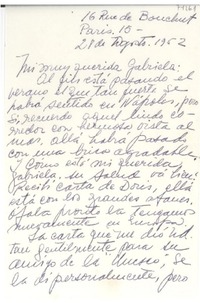 16 Rue de Bonchut
Paris. 15 -
28 de Agosto. 1952
Mi muy querida Gabriela:
Al fin está pasando el
verano el que tan fuerte se
habrá sentido en Nápoles, pero
si recuerdo aquel lindo co-
rredor con hermosa vista al
mar, allá habrá pasado
con una brisa agradable.
¿Cómo está mi querida
Gabriela, su salud va bien?
Recibí carta de Doris, ella
está con los grandes afanes.
Ojalá pronto la tengamos
nuevamente en
La carta que me dió
tan gentilmente para su
amigo de la Unesco, se
la dí personalmente, pero